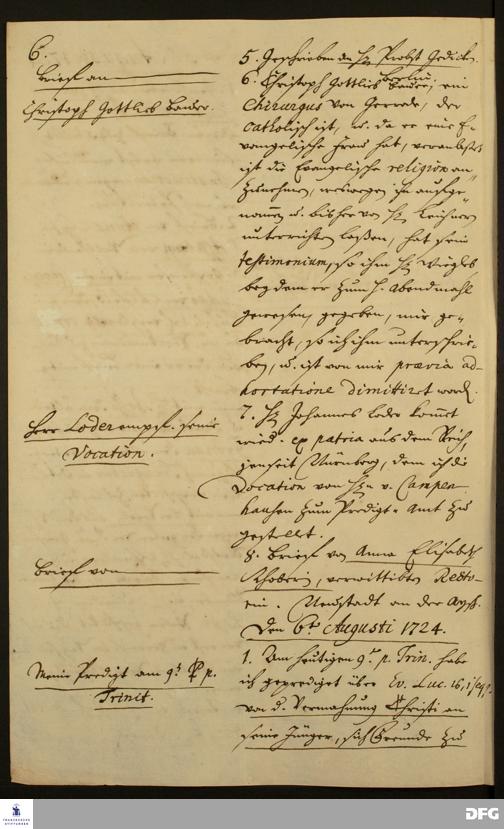 6.
Brief an
Christoph Gottlieb Bander.
5. Geschrieben an H. Probst Gedicke.
Berlin.
6. Christoph Gottlieb Bander, ein
Chirurgus von Gerrode, der
catholisch ist, u. da er eine E-
vangelische Frau hat, veranlaßet
ist die Evangelische religion an
zunehmen, weswegen ihn aufge
nommen u. bisher von H.
unterrichten laßen, hat sein
testimonium, so ihm H.
bey dem er zum H. Abendmahl
gewesen, gegeben, mir ge-
bracht, so ich ihm unterschrie-
ben, u. ist von mir praevia ad-
hortatione dimittiret word.
Herr Loder empf. seine
Vocation.
7. H. Johannes Loder kommt
wied. ex patria aus dem Reich,
jenseit Nürnberg, dem ich die
Vocation von H. v. Campen
hausen zum Predigt-Amt zu
gestellet.
Brief von
8. Brief von Anna Elisabeth
verwittibten Recto-
rin. Neustadt an der Aysch.
Den 6ten Augusti 1724.
Meine Predigt am 9. p.
Trinit.
1. Am heutigen 9. p. Trin. habe
ich geprediget über Ev. Luc. 16, 1
von d. Vermahnung Christi an
seine Jünger, sich Freunde zu
FRANCKESCHE STIFTUNGEN
DFG